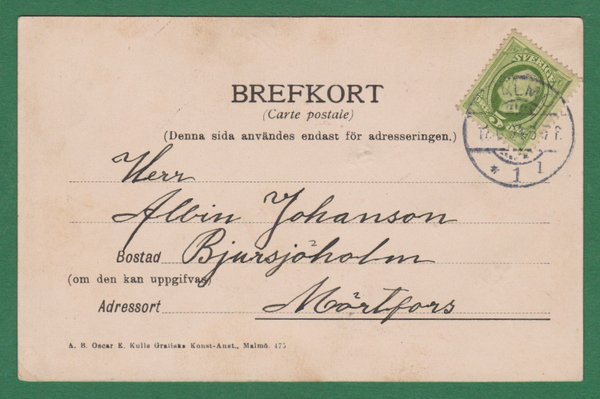 SVERIGE
BREFKORT
(Carte postale)
(Denna sida användes endast för adresseringen.)
Herr
Albin Johanson
Bostad Bjursjöholm
(om den kan uppgifvas)
Adressort Mörtfors
A. B. Oscar E. Kulls Grafiska Konst-Anst., Malmö. 475